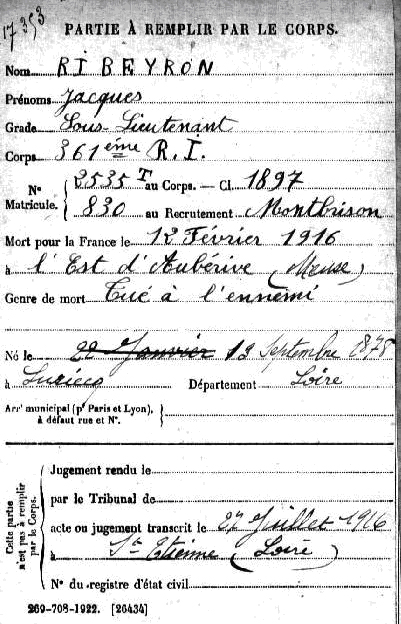 17353
PARTIE À REMPLIR PAR LE CORPS.
Nom RIBEYRON
Prénoms Jacques
Grade Sous-Lieutenant
Corps 361ème R.I.
N° Matricule. { 3535 T au Corps. — Cl. 1897
830 au Recrutement Montbrison
Mort pour la France le 12 Février 1916
à l'Est d'Aubérive (Meuse)
Genre de mort Tué à l'ennemi
Né le 22 Janvier 13 Septembre 1878
à Luriecq Département Loire
Arrt municipal (pr Paris et Lyon), à défaut rue et N°.
Cette partie n'est pas à remplir par le Corps.
Jugement rendu le
par le Tribunal de
acte ou jugement transcrit le 27 Juillet 1916
à St Etienne (Loire)
N° du registre d'état civil
269-708-1922. [26434]